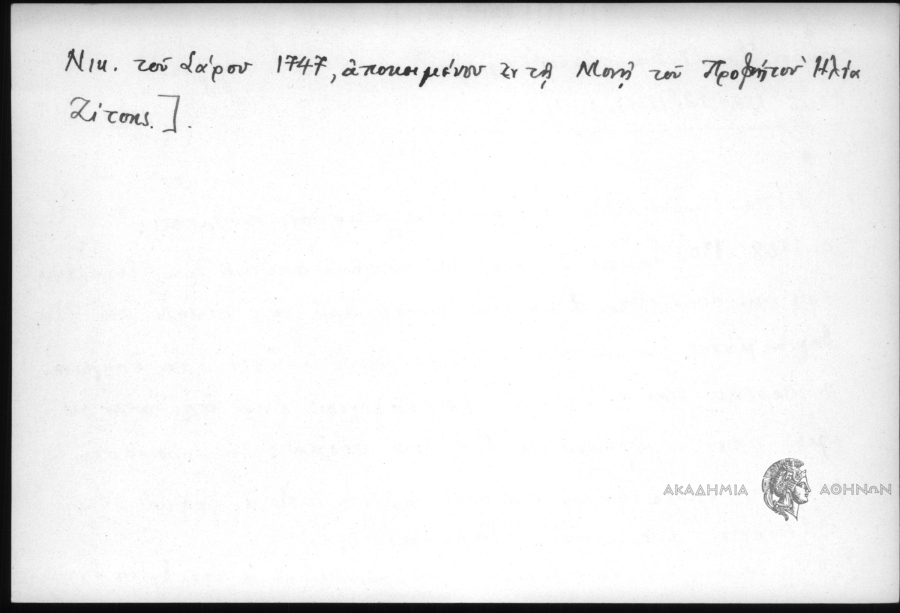 Νικ. τοῦ Σάρου 1747, ἀποκειμένου ἐν τῇ Μονῇ τοῦ Προφήτου Ἠλία
Ζίτσης.].
ΑΚΑΔΗΜΙΑ ΑΘΗΝΩΝ